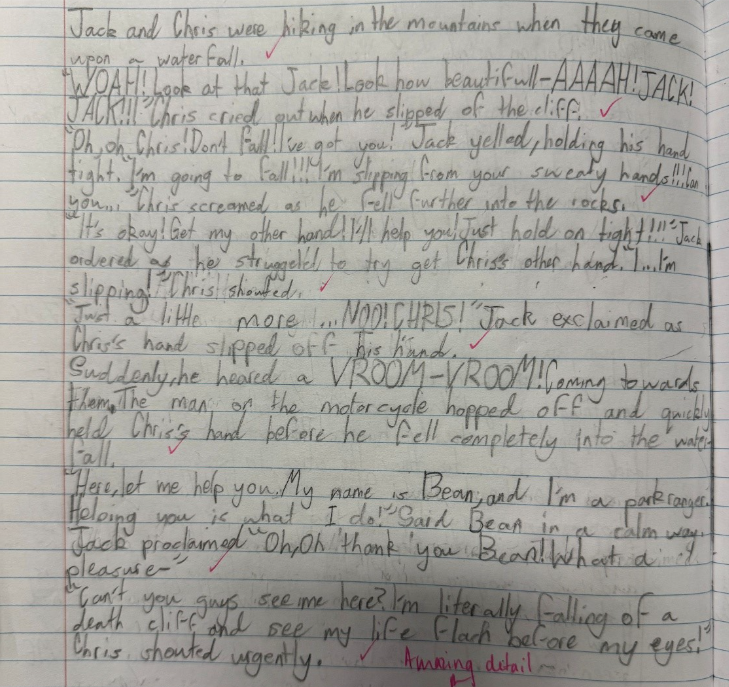 Jack and Chris were hiking in the mountains when they came
upon a waterfall.
"WOAH! Look at that Jack! Look how beautifull-AAAAH! JACK!
JACK!!!" Chris cried out when he slipped of the cliff.
"Oh, oh Chris! Don't fall! I've got you!" Jack yelled, holding his hand
tight. "I'm going to fall!!! I'm slipping from your sweaty hands!!! Can
you..." Chris screamed as he fell further into the rocks.
"It's okay! Get my other hand! I'll help you! Just hold on tight!!!" Jack
ordered as he struggeled to try get Chris's other hand. "I...I'm
slipping!" Chris shouted.
"Just a little more ...NOO! CHRIS!" Jack exclaimed as
Chris's hand slipped off his hand.
Suddenly, he heared a VROOM-VROOM! Coming towards
them. The man on the motorcycle hopped off and quickly
held Chris's hand before he fell completely into the water-
fall.
"Here, let me help you. My name is Bean, and I'm a park ranger.
Helping you is what I do!" Said Bean in a calm way.
Jack proclaimed "Oh, Oh thank you Bean! What a
pleasure-"
"Can't you guys see me here? I'm literally falling of a
death cliff and see my life flach before my eyes!"
Chris shouted urgently.
Amazing detail